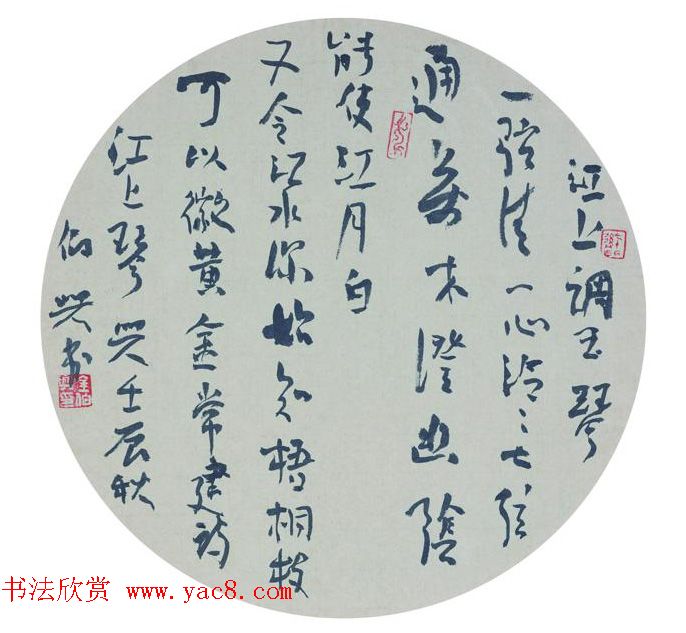 江上調玉琴
一弦清一心泠〻七弦
通萬木澄幽陰
能使江月白
又令江水深始知梧桐枝
可以徽黄金常建詩
江上琴兴壬辰秋
伯兴书
书法欣赏 www.yac8.com